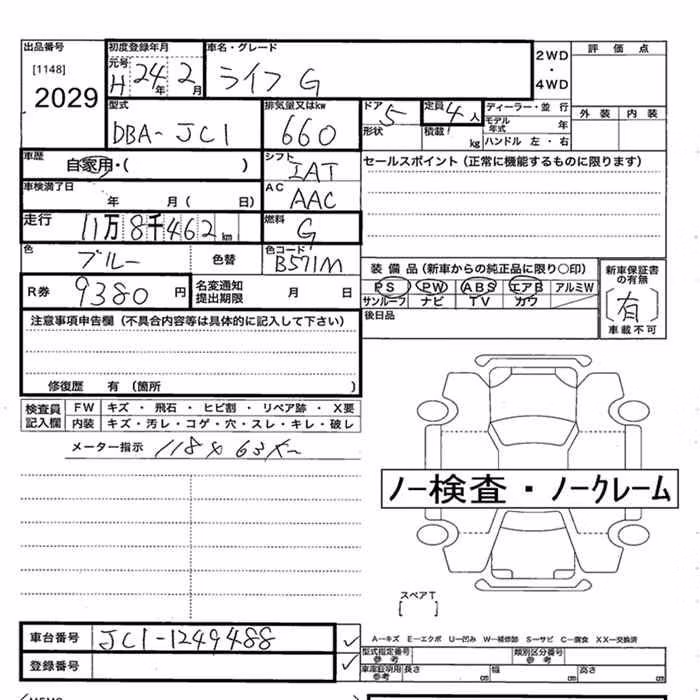 出品番号
[1148]
2029
初度登録年月
元号
H 24年 2月
車名・グレード
ライフ G
2WD
・
4WD
評価点
外装 内装
型式
DBA-JC1
排気量又はkw
660
ドア
5
形状
定員
4人
積載
kg
ディーラー・並行
モデル年式 年
ハンドル 左・右
車歴
自家用・( )
シフト
IAT
セールスポイント(正常に機能するものに限ります)
車検満了日
年 月( 日)
AC
AAC
走行
11万8千462km
燃料
G
色
ブルー
色替
色コード
B571M
装備品(新車からの純正品に限り○印)
PS PW ABS エアB アルミW
サンルーフ ナビ TV カワ
新車保証書の有無
[有]
車載不可
R券
9380円
名変通知
提出期限
月 日
後日品
注意事項申告欄(不具合内容等は具体的に記入して下さい)
修復歴 有(箇所 )
検査員
記入欄
FW キズ・飛石・ヒビ割・リペア跡・X要
内装 キズ・汚レ・コゲ・穴・スレ・キレ・破レ
メーター指示
ノー検査・ノークレーム
スペアT
[ ]
車台番号
JC1-1249488
登録番号
A―キズ E―エクボ U―凹み W―補修跡 S―サビ C―腐食 XX―交換済
型式指定番号
参考
類別区分番号
参考
車庫証明用
参考
長さ cm 幅 cm 高さ cm